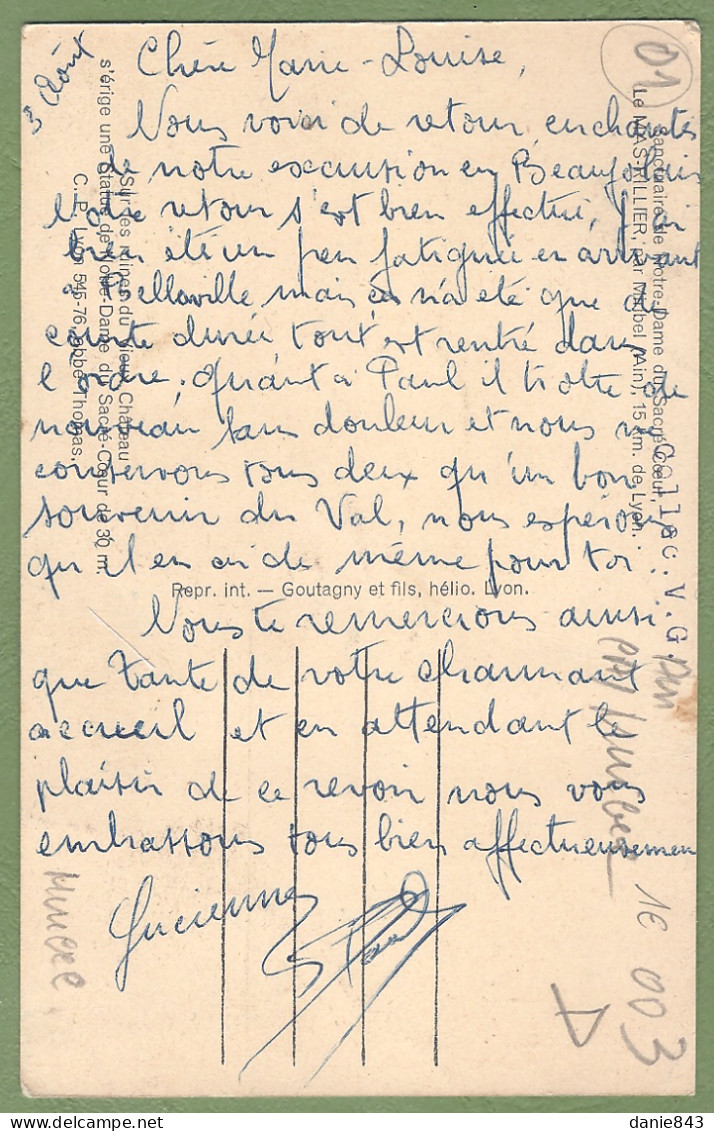 3 Août
Chère Marie-Louise,
Nous voici de retour, enchantés
de notre excursion en Beaujolais
Notre retour s'est bien effectué, j'ai
bien été un peu fatiguée en arrivant
à Belleville mais ça n'a été que de
courte durée tout est rentré dans
l'ordre, quant à Paul il trotte de
nouveau sans douleur et nous ne
conservons tous deux qu'un bon
souvenir du Val, nous espérons
qu'il en ai de même pour toi.
Nous te remercions ainsi
que Tante de votre charmant
accueil et en attendant le
plaisir de se revoir nous vous
embrassons tous bien affectueusement
Lucienne
Paul
Sanctuaire de Notre-Dame du Sacré-Cœur,
Le MAS-RILLIER, par Miribel (Ain). 15 km. de Lyon.
Sur les ruines du vieux Château
s'érige une Statue de Notre-Dame du Sacré-Cœur de 30 m.
C. P. Lyon 545-76, abbé Thomas.
Repr. int. — Goutagny et fils, hélio. Lyon.
Collec. V.G.
01
1€
003
danie843